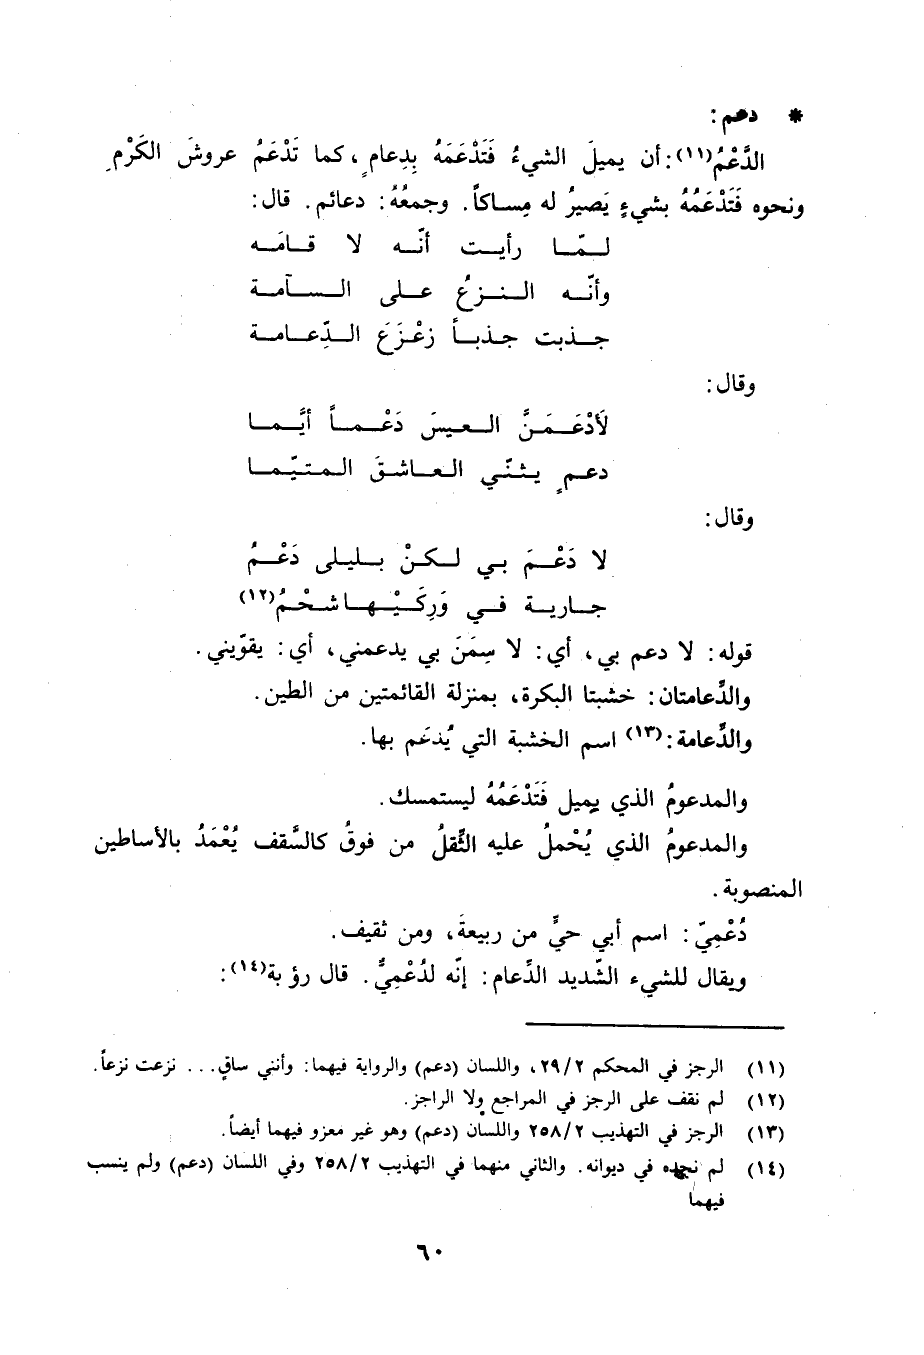 * دعم :
الدَّعْمُ(١١): أن يميلَ الشيءُ فَتَدْعَمَهُ بِدِعامٍ، كما تَدْعَمُ عروشَ الكَرْمِ
ونحوه فَتَدْعَمُهُ بشيءٍ يَصيرُ له مِساكاً. وجمعُهُ: دعائم. قال:
لمّا رأيت أنّه لا قامَه
وأنّه النزعُ على السآمة
جذبت جذباً زعْزَعَ الدِّعامة
وقال:
لَأدْعَمَنَّ العيسَ دَعْماً أيَّما
دعمٍ يثنّي العاشقَ المتيّما
وقال:
لا دَعْمَ بي لكنْ بليلى دَعْمُ
جارية في وَرِكَيْها شحْمُ(١٢)
قوله: لا دعم بي، أي: لا سِمَنَ بي يدعمني، أي: يقوّيني.
والدِّعامتان: خشبتا البكرة، بمنزلة القائمتين من الطين.
والدِّعامة:(١٣) اسم الخشبة التي يُدعَم بها.
والمدعومُ الذي يميل فَتَدْعَمُهُ ليستمسك.
والمدعومُ الذي يُحْملُ عليه الثِّقلُ من فوقُ كالسَّقف يُعْمَدُ بالأساطين
المنصوبة.
دُعْمِيّ: اسم أبي حيٍّ من ربيعةَ، ومن ثقيف.
ويقال للشيء الشّديد الدِّعام: إنّه لدُعْمِيٌّ. قال رؤبة(١٤):
(١١) الرجز في المحكم ٢٩/٢، واللسان (دعم) والرواية فيهما: وأنني ساقٍ... نزعت نزعاً.
(١٢) لم نقف على الرجز في المراجع ولا الراجز.
(١٣) الرجز في التهذيب ٢٥٨/٢ واللسان (دعم) وهو غير معزو فيهما أيضاً.
(١٤) لم نجده في ديوانه. والثاني منهما في التهذيب ٢٥٨/٢ وفي اللسان (دعم) ولم ينسب
فيهما
٦٠